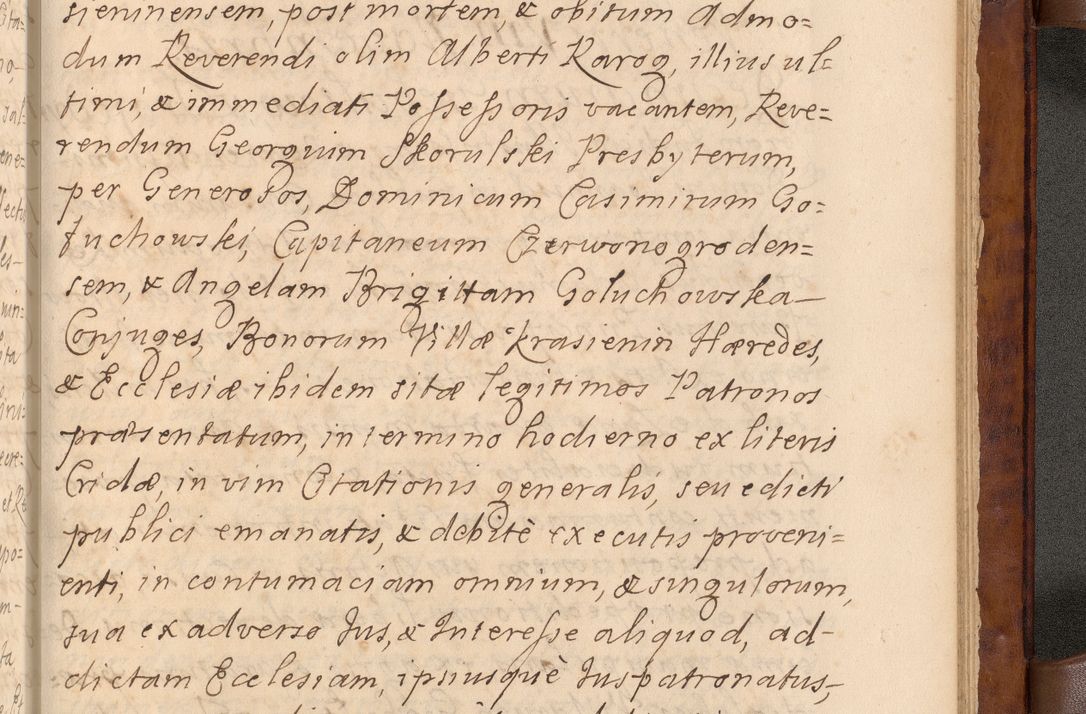 sieninensem, post mortem, & obitum Admo=
dum Reverendi olim Alberti Karog, illius ul=
timi, & immediati Possessoris vacantem, Reve=
rendum Georgium Skorulski Presbyterum,
per Generosos, Dominicum Casimirum Go=
łuchowski, Capitaneum Czerwonogroden=
sem, & Angelam Brigittam Gołuchowska
Conjuges, Bonorum Villæ Krasienin Hæredes,
& Ecclesiæ ibidem sitæ legitimos Patronos
præsentatum, in termino hodierno ex literis
Cridæ, in vim Citationis generalis, seu edicti
publici emanatis, & debitè executis proveni=
enti, in contumaciam omnium, & singulorum,
sua ex adverso Jus, & Interesse aliquod, ad
dictam Ecclesiam, ipsiusquè Juspatronatus,